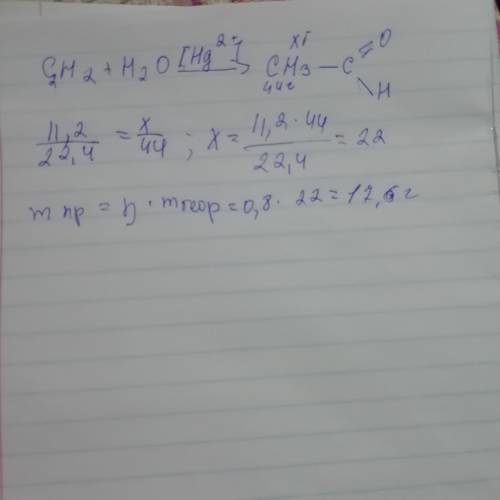 xг O
C2H2 + H2O [Hg2+] → CH3 – C
44г H
11,2/22,4 = x/44 ; x = 11,2 · 44/22,4 = 22
m пр = η · m теор = 0,8 · 22 = 17,6 г